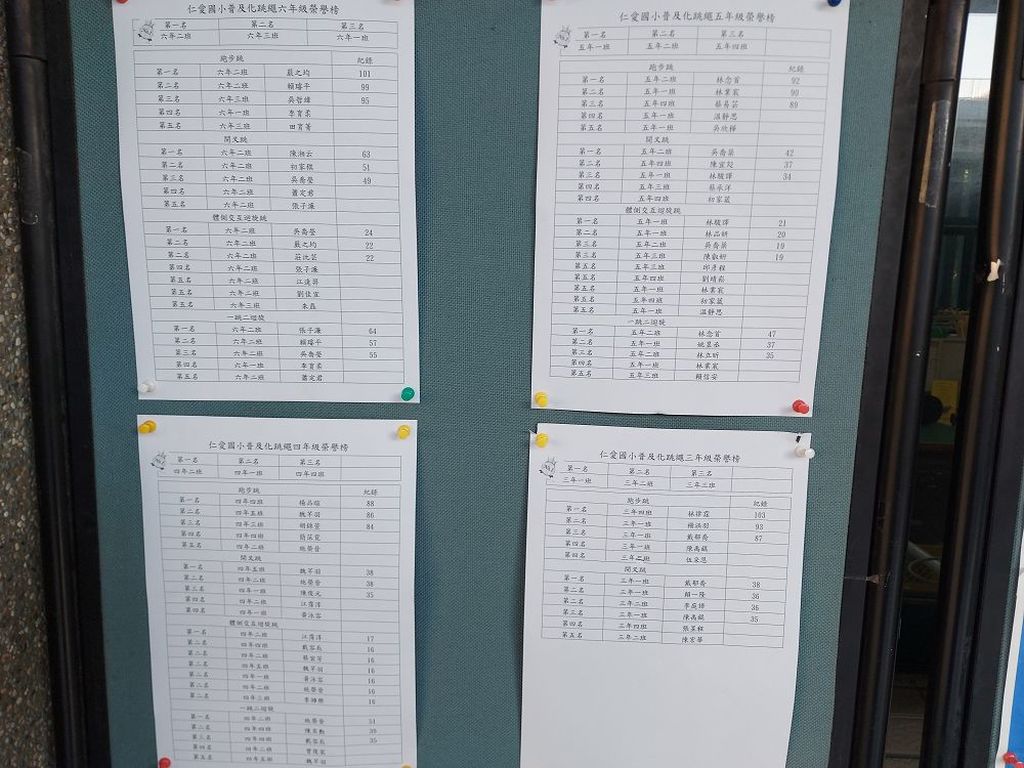 仁愛國小普及化跳繩六年級榮譽榜
第一名 第二名 第三名
六年二班 六年三班 六年一班
跑步跳 紀錄
第一名 六年二班 嚴之均 101
第二名 六年二班 賴璿平 99
第三名 六年三班 吳哲緯 95
第四名 六年一班 李育柔
第五名 六年三班 田育菁
開叉跳
第一名 六年二班 陳湘云 63
第二名 六年二班 初家褀 51
第三名 六年二班 吳喬瑩 49
第四名 六年二班 蕭定君
第五名 六年二班 張子濂
體側交互迴旋跳
第一名 六年二班 吳喬瑩 24
第二名 六年二班 嚴之均 22
第二名 六年二班 莊沘芸 22
第四名 六年二班 張子濂
第五名 六年二班 江達昇
第五名 六年二班 劉佳宜
第五名 六年三班 朱磊
一跳二迴旋
第一名 六年二班 張子濂 64
第二名 六年二班 賴璿平 57
第三名 六年二班 吳喬瑩 55
第四名 六年一班 李育柔
第五名 六年二班 蕭定君
仁愛國小普及化跳繩五年級榮譽榜
第一名 第二名 第三名
五年一班 五年二班 五年四班
跑步跳 紀錄
第一名 五年二班 林念首 92
第二名 五年一班 林業宸 90
第三名 五年四班 蔡易芸 89
第四名 五年一班 溫靜思
第五名 五年一班 吳欣樺
開叉跳
第一名 五年二班 吳喬葉 42
第二名 五年四班 陳宜彣 37
第三名 五年一班 林駿譯 34
第四名 五年三班 蔡承洋
第五名 五年四班 初家葳
體側交互迴旋跳
第一名 五年一班 林駿譯 21
第二名 五年一班 林品妍 20
第三名 五年二班 吳喬葉 19
第三名 五年三班 陳叡妍 19
第五名 五年三班 邱彥程
第五名 五年四班 劉晴崧
第五名 五年一班 林業宸
第五名 五年四班 初家葳
第五名 五年一班 溫靜思
一跳二迴旋
第一名 五年二班 林念首 47
第二名 五年一班 姚昱丞 37
第三名 五年二班 林立昕 35
第四名 五年一班 林業宸
第五名 五年三班 賴信安
仁愛國小普及化跳繩四年級榮譽榜
第一名 第二名 第三名
四年二班 四年一班 四年四班
跑步跳 紀錄
第一名 四年四班 楊品暄 88
第二名 四年五班 魏芊羽 86
第三名 四年三班 胡錦萱 84
第四名 四年四班
第五名 四年二班 施榮晉
開叉跳
第一名 四年五班 魏芊羽 38
第二名 四年二班 施榮晉 38
第三名 四年一班 陳俊元 35
第四名 四年二班 江霈淳
第四名 四年一班 黃泳容
體側交互迴旋跳
第一名 四年二班 江霈淳 17
第二名 四年四班 戴容辰 16
第二名 四年二班 16
第二名 四年五班 魏芊羽 16
第二名 四年一班 黃泳容 16
第二名 四年二班 施榮晉 16
第二名 四年三班 16
一跳二迴旋
第一名 四年二班 施榮晉 51
第二名 四年四班 39
第三名 四年四班 戴容辰 35
第四名 四年二班
第五名 四年五班 魏芊羽
仁愛國小普及化跳繩三年級榮譽榜
第一名 第二名 第三名
三年一班 三年二班 三年三班
跑步跳 紀錄
第一名 三年四班 林律霆 103
第二名 三年一班 楊洢羽 93
第三名 三年一班 戴郁喬 87
第四名 三年一班 陳禹鎮
第四名 三年二班 伍采恩
開叉跳
第一名 三年一班 戴郁喬 38
第二名 三年一班 賴一隆 36
第二名 三年二班 李庭締 36
第三名 三年一班 陳禹鎮 35
第四名 三年四班 張呈程
第五名 三年二班 陳宏華